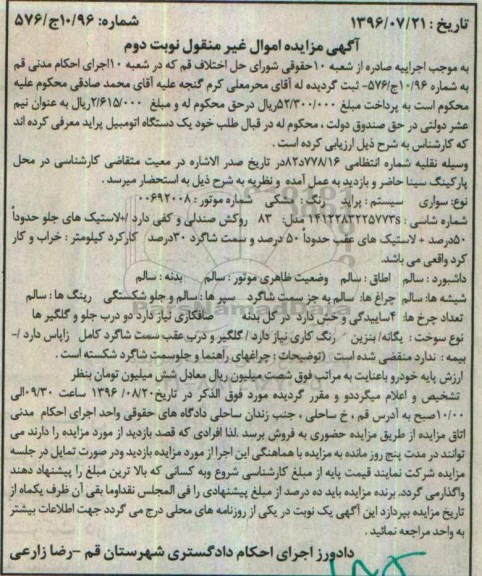 تاریخ : ۱۳۹۶/۰۷/۲۱
شماره: ۱۰/۹۶ج/۵۷۶
آگهی مزایده اموال غیر منقول نوبت دوم
به موجب اجراییه صادره از شعبه ۱۰حقوقی شورای حل اختلاف قم که در شعبه ۱۰اجرای احکام مدنی قم
به شماره ۱۰/۹۶ج/۵۷۶- ثبت گردیده له آقای محرمعلی کرم گنجه علیه آقای محمد صادقی محکوم علیه
محکوم است به پرداخت مبلغ ۵۲/۳۰۰/۰۰۰ریال درحق محکوم له و مبلغ ۲/۶۱۵/۰۰۰ریال به عنوان نیم
عشر دولتی در حق صندوق دولت ، محکوم له در قبال طلب خود یک دستگاه اتومبیل پراید معرفی کرده اند
که کارشناس به شرح ذیل ارزیابی کرده است .
وسیله نقلیه شماره انتظامی ۷۷۸/۱۶د۸۲در تاریخ صدر الاشاره در معیت متقاضی کارشناسی در محل
پارکینگ سینا حاضر و بازدید به عمل آمده و نظریه به شرح ذیل به استحضار میرسد .
نوع: سواری سیستم : پراید رنگ : مشکی شماره موتور : ۰۰۶۹۲۰۰۸
شماره شاسی : S۱۴۱۲۲۸۳۲۲۵۷۷۳ مدل: ۸۳ روکش صندلی و کفی دارد /+لاستیک های جلو حدوداً
۵۰درصد + لاستیک های عقب حدوداً ۵۰ درصد و سمت شاگرد ۳۰درصد کارکرد کیلومتر : خراب و کار
کرد واقعی می باشد.
داشبورد : سالم اطاق : سالم وضعیت ظاهری موتور : سالم بدنه : سالم
شیشه ها: سالم چراغ ها: سالم به جز سمت شاگرد سپر ها : سالم و جلو شکستگی رینگ ها : سالم
تعداد چرخ ها: ۴ساییدگی و خش دارد در کل بدنه صافکاری نیاز دارد دو درب جلو و گلگیر ها
نوع سوخت : یگانه/ بنزین رنگ کاری نیاز دارد / گلگیر و درب عقب سمت شاگرد کامل زاپاس دارد /-
بیمه : ندارد منقضی شده است (توضیحات : چراغهای راهنما و جلوسمت شاگرد شکسته است .
ارزش پایه خودرو باعنایت به مراتب فوق شصت میلیون ریال معادل شش میلیون تومان بنظر
تشخیص و اعلام میگرددو و مقرر گردیده مورد فوق الذکر در تاریخ۱۳۹۶/۰۸/۲۰ ساعت ۰۹/۳۰الی
۱۰/۰۰صبح به آدرس قم ، خ ساحلی ، جنب زندان ساحلی دادگاه های حقوقی واحد اجرای احکام مدنی
اتاق مزایده از طریق مزایده حضوری به فروش برسد .لذا افرادی که قصد بازدید از مورد مزایده را دارند می
توانند در مدت پنج روز مانده به مزایده با هماهنگی این اجرا از مورد مزایده بازدید ودر صورت تمایل در جلسه
مزایده شرکت نمایند قیمت پایه از مبلغ کارشناسی شروع وبه کسانی که بالا ترین مبلغ را پیشنهاد دهند
واگذارمی گردد. برنده مزایده باید ده درصد از مبلغ پیشنهادی را فی المجلس نقداوما بقی آن ظرف یکماه از
تاریخ مزایده بپردازد این آگهی یک نوبت در یکی از روزنامه های محلی درج می گردد جهت اطلاعات بیشتر
به واحد مراجعه نمائید .
دادورز اجرای احکام دادگستری شهرستان قم -رضا زارعی